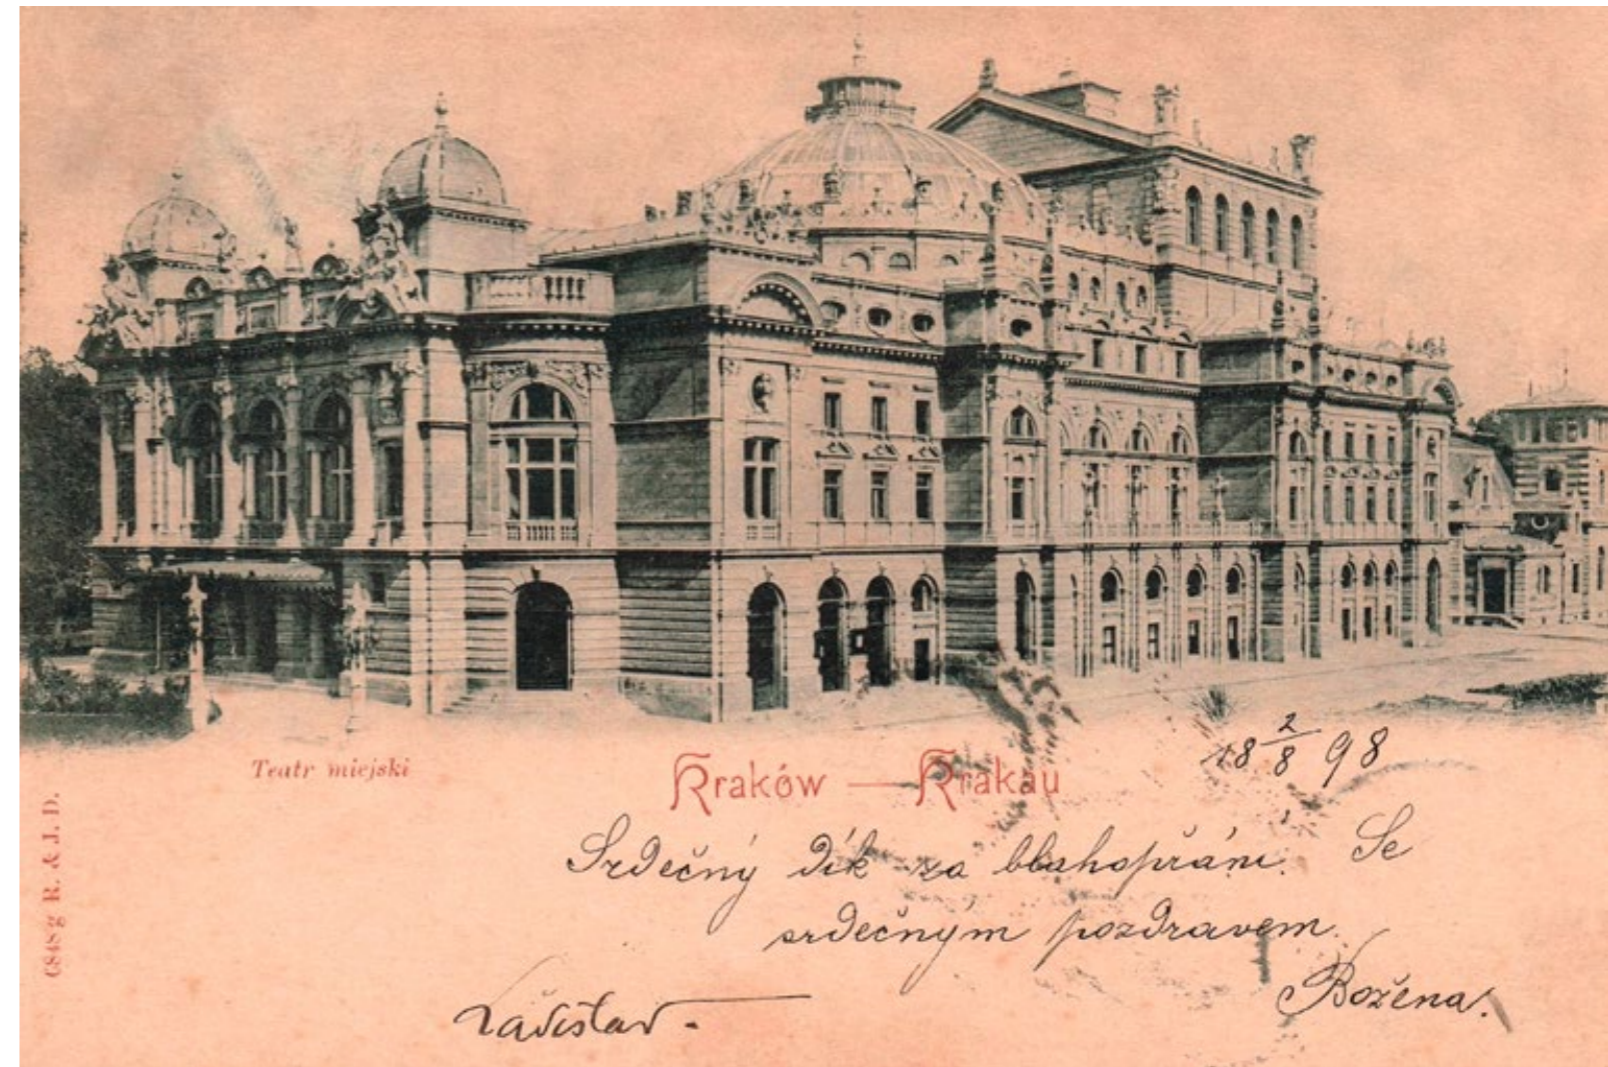 Teatr miejski
Kraków — Krakau
18 2/8 98
Srdečný dík za blahopřání. Se
srdečným pozdravem.
Božena.
Ladislav.
C848g R. & J. D.